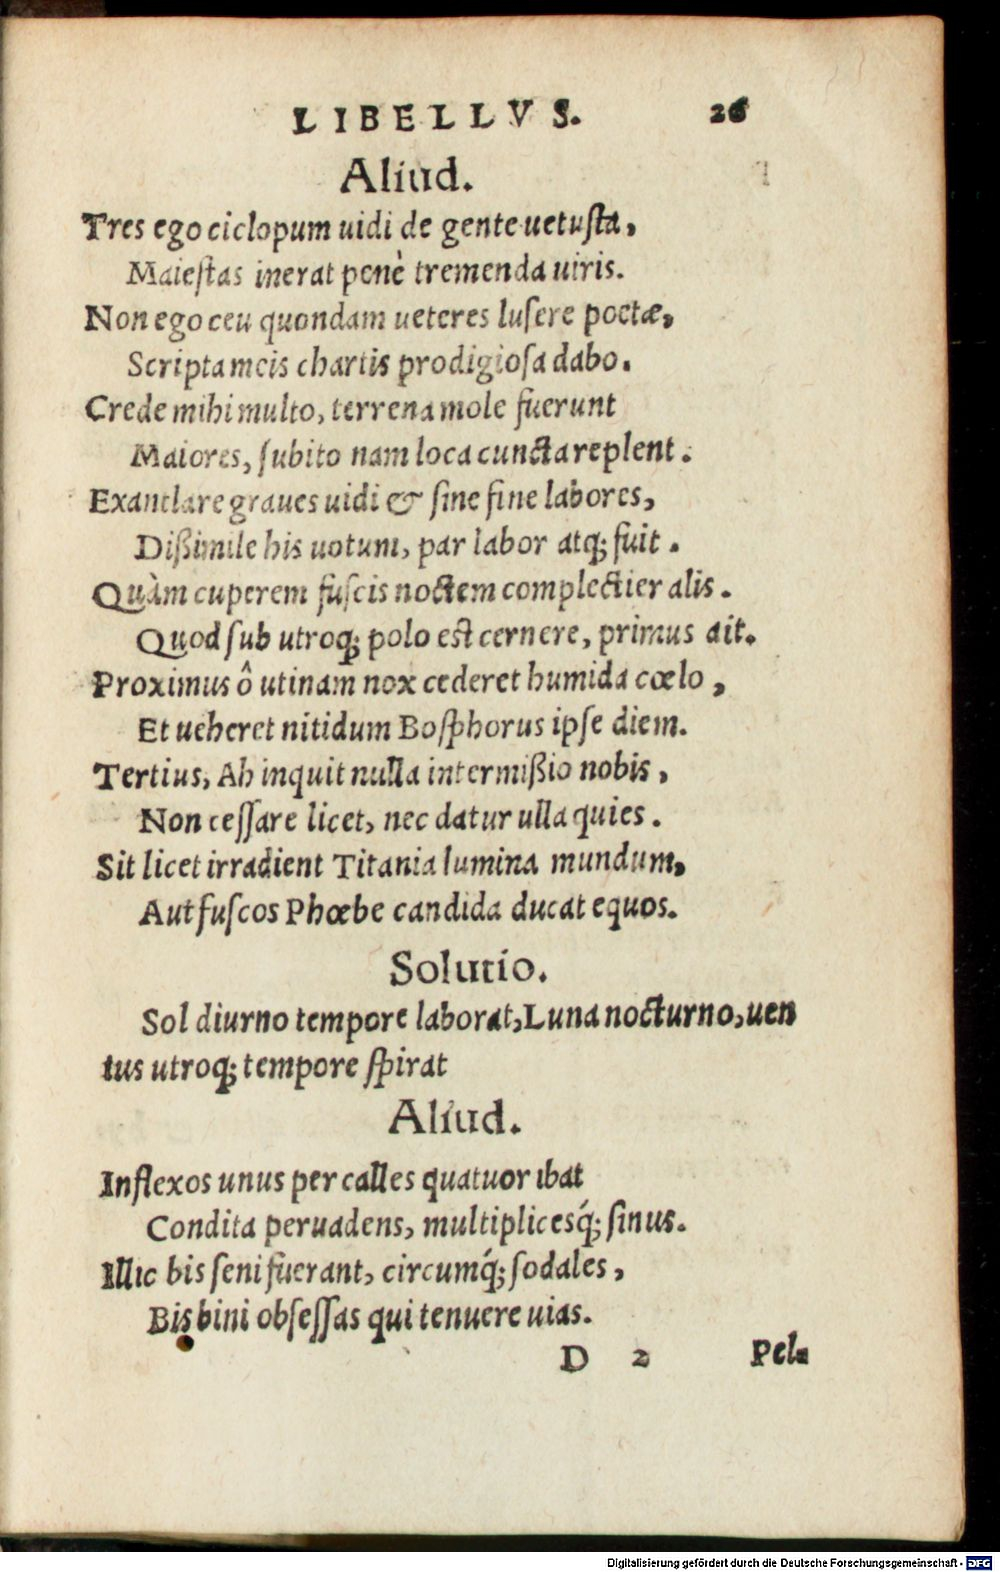 LIBELLVS. 26
Aliud.
Tres ego ciclopum uidi de gente uetuſta,
Maieſtas inerat penè tremenda uiris.
Non ego ceu quondam ueteres luſere poetæ,
Scripta meis chartis prodigioſa dabo.
Crede mihi multo, terrena mole fuerunt
Maiores, ſubito nam loca cuncta replent.
Exanclare graues uidi & ſine fine labores,
Dißimile his uotum, par labor atq; fuit.
Quàm cuperem fuſcis noctem complectier alis.
Quod ſub utroq; polo est cernere, primus ait.
Proximus ô utinam nox cederet humida cœlo,
Et ueheret nitidum Boſphorus ipſe diem.
Tertius, Ah inquit nulla intermißio nobis,
Non ceſſare licet, nec datur ulla quies.
Sit licet irradient Titania lumina mundum,
Aut fuſcos Phœbe candida ducat equos.
Solutio.
Sol diurno tempore laborat, Luna nocturno, uen
tus utroq; tempore ſpirat
Aliud.
Inflexos unus per calles quatuor ibat
Condita peruadens, multiplicesq́; ſinus.
Illic bis ſeni fuerant, circumq́; ſodales,
Bis bini obſeſſas qui tenuere uias.
D 2 Pel-
Digitalisierung gefördert durch die Deutsche Forschungsgemeinschaft - DFG